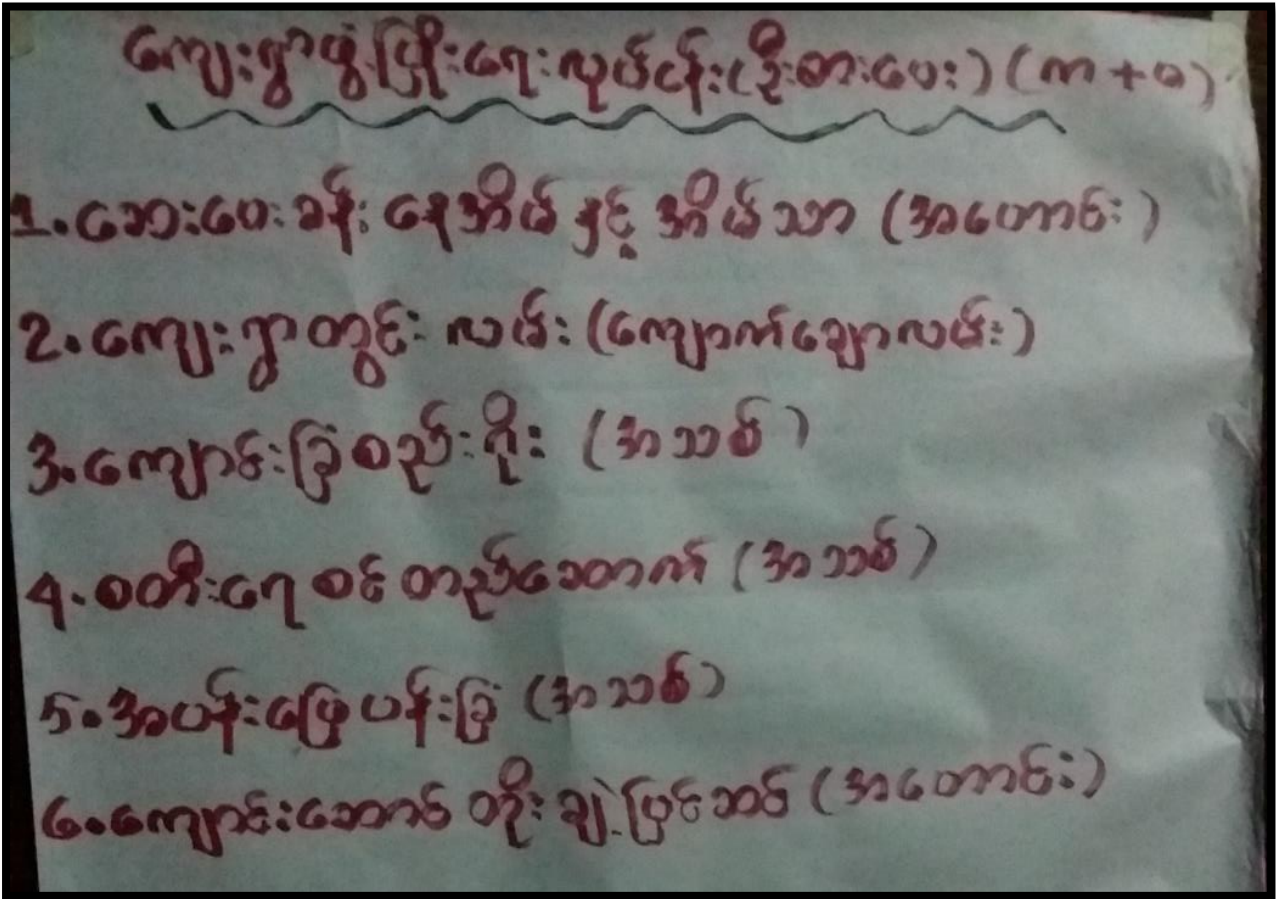 ကျေးရွာဖွံ့ဖြိုးရေးလုပ်ငန်း(ဦးစားပေး) (က + ခ)
1. ဆေးပေးခန်း နေအိမ် နှင့် အိမ်သာ (အဟောင်း)
2. ကျေးရွာတွင်း လမ်း (ကျောက်ချောလမ်း)
3. ကျောင်းခြံစည်းရိုး (အသစ်)
4. စတီးရေစင် တည်ဆောက် (အသစ်)
5. အပန်းဖြေပန်းခြံ (အသစ်)
6. ကျောင်းဆောင် တိုးချဲ့ပြင်ဆင် (အဟောင်း)